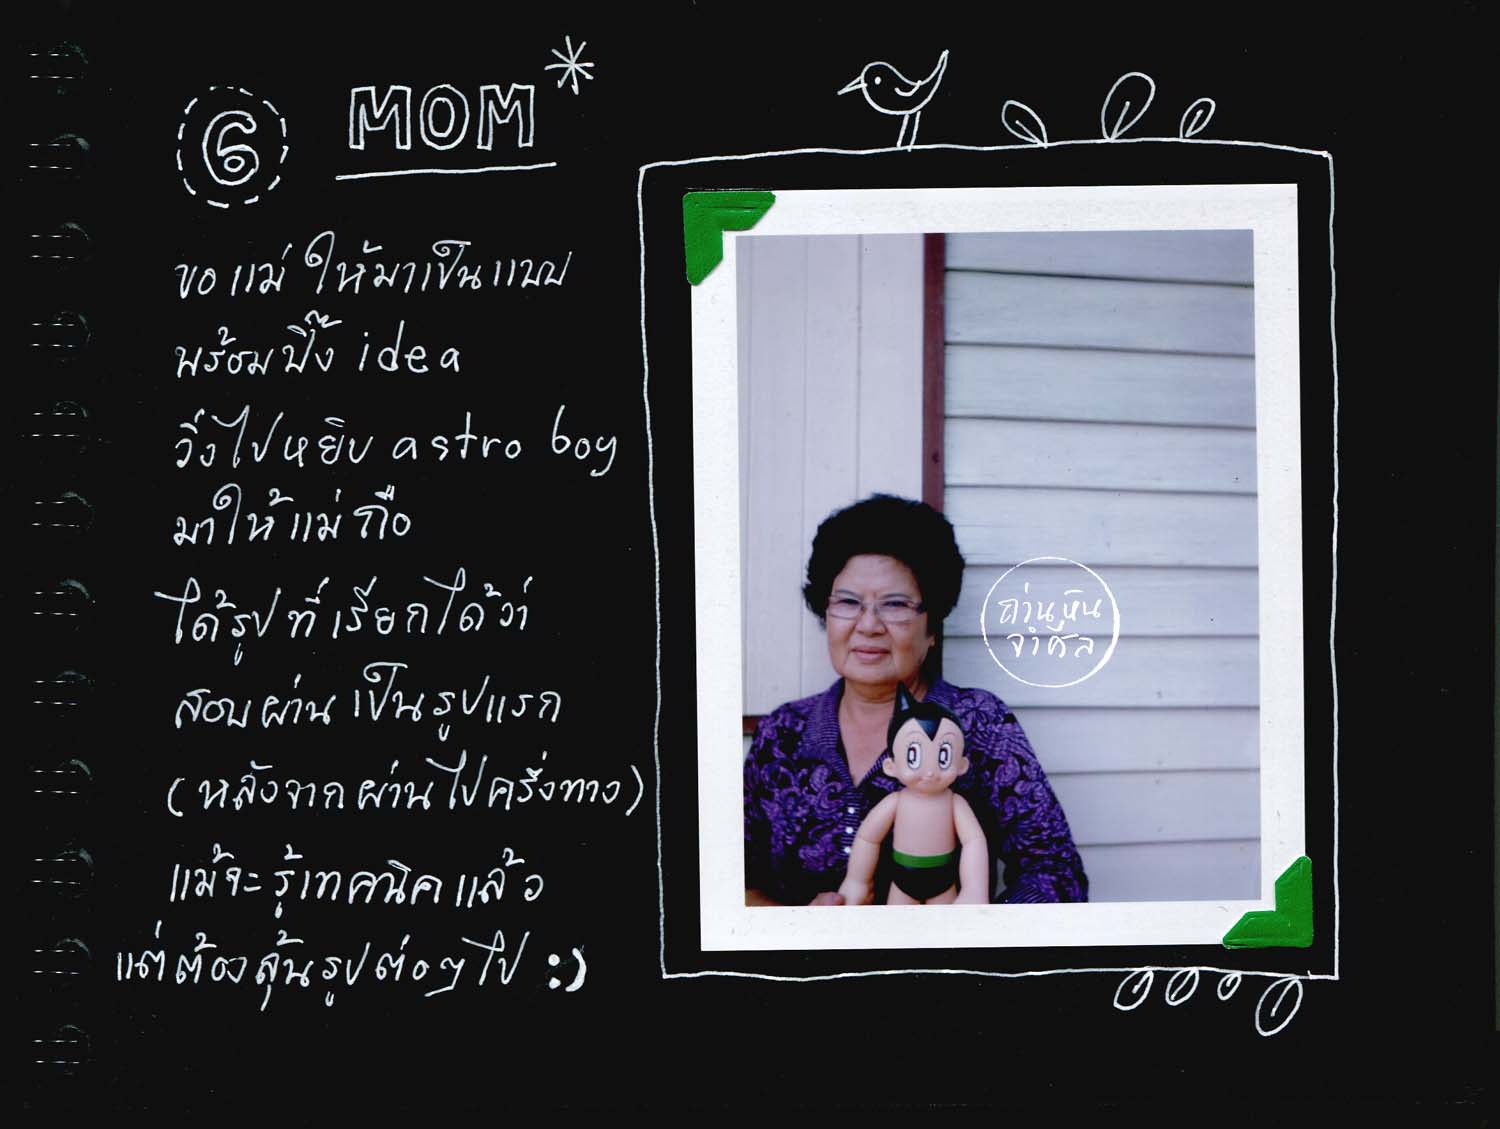 6 MOM*
ขอแม่ ให้มาเป็นแบบ
พร้อมปิ๊ง idea
วิ่งไปหยิบ astro boy
มาให้แม่ถือ
ได้รูปที่เรียกได้ว่า
สอบผ่าน เป็นรูปแรก
(หลังจากผ่านไปครึ่งทาง)
แม้จะรู้เทคนิคแล้ว
แต่ต้องลุ้นรูปต่อๆไป :)
ถ่านหิน
จำศีล